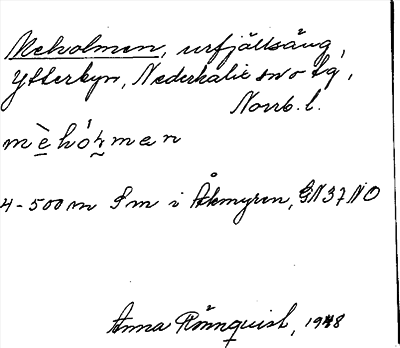 Meholmen, urfjällsäng,
Ytterbyn, Nederkalix sn o tg,
Norrb. l.
mèhó̤l̥men
4-500 m S m i Åkmyren, GN37NO
Anna Rönnquist, 1948